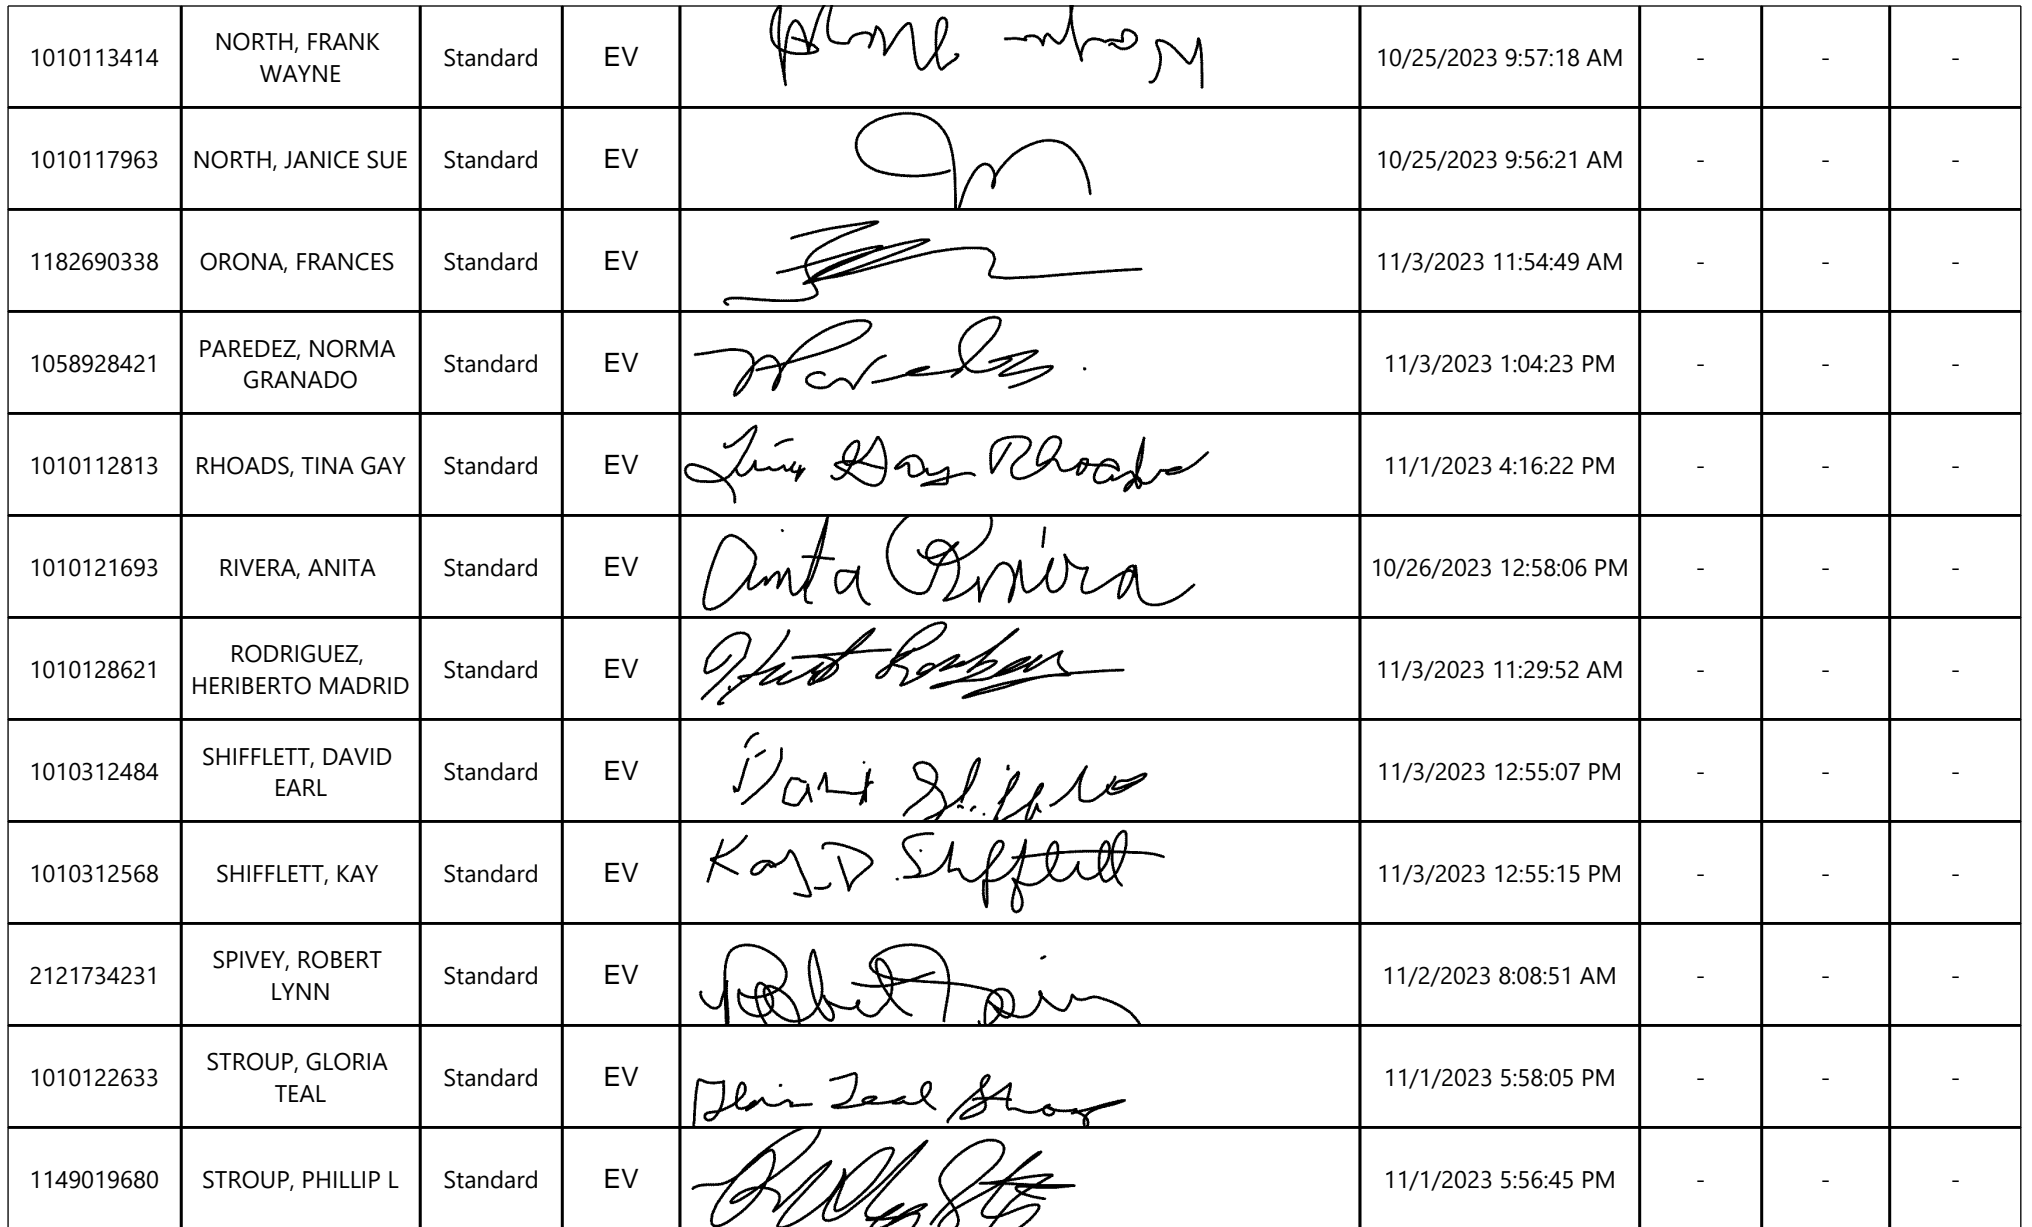 1010113414 NORTH, FRANK WAYNE Standard EV 10/25/2023 9:57:18 AM - - -
1010117963 NORTH, JANICE SUE Standard EV 10/25/2023 9:56:21 AM - - -
1182690338 ORONA, FRANCES Standard EV 11/3/2023 11:54:49 AM - - -
1058928421 PAREDEZ, NORMA GRANADO Standard EV 11/3/2023 1:04:23 PM - - -
1010112813 RHOADS, TINA GAY Standard EV Tina Gay Rhoads 11/1/2023 4:16:22 PM - - -
1010121693 RIVERA, ANITA Standard EV Anita Rivera 10/26/2023 12:58:06 PM - - -
1010128621 RODRIGUEZ, HERIBERTO MADRID Standard EV 11/3/2023 11:29:52 AM - - -
1010312484 SHIFFLETT, DAVID EARL Standard EV 11/3/2023 12:55:07 PM - - -
1010312568 SHIFFLETT, KAY Standard EV Kay D Shifflett 11/3/2023 12:55:15 PM - - -
2121734231 SPIVEY, ROBERT LYNN Standard EV Robert 11/2/2023 8:08:51 AM - - -
1010122633 STROUP, GLORIA TEAL Standard EV Teal 11/1/2023 5:58:05 PM - - -
1149019680 STROUP, PHILLIP L Standard EV 11/1/2023 5:56:45 PM - - -